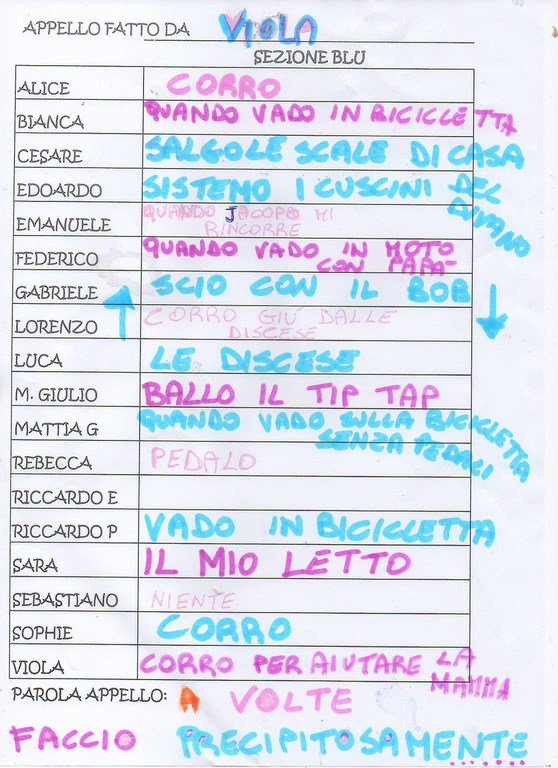 APPELLO FATTO DA VIOLA
SEZIONE BLU
ALICE CORRO
BIANCA QUANDO VADO IN BICICLETTA
CESARE SALGO LE SCALE DI CASA
EDOARDO SISTEMO I CUSCINI DEL DIVANO
EMANUELE QUANDO JACOPO MI
RINCORRE
FEDERICO QUANDO VADO IN MOTO
CON PAPA'
GABRIELE SCIO CON IL BOB
LORENZO CORRO GIÙ DALLE
DISCESE
LUCA LE DISCESE
M. GIULIO BALLO IL TIP TAP
MATTIA G QUANDO VADO SULLA BICICLETTA
SENZA PEDALI
REBECCA PEDALO
RICCARDO E
RICCARDO P VADO IN BICICLETTA
SARA IL MIO LETTO
SEBASTIANO NIENTE
SOPHIE CORRO
VIOLA CORRO PER AIUTARE LA
MAMMA
PAROLA APPELLO: A VOLTE
FACCIO PRECIPITOSAMENTE.......